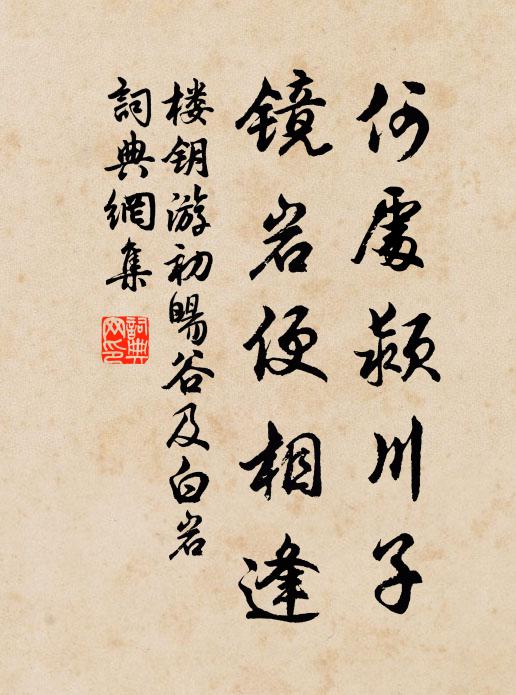 何處颍川子
镜岩便相逢
楼钥游初暘谷及白岩
詞典網集
詞典網印